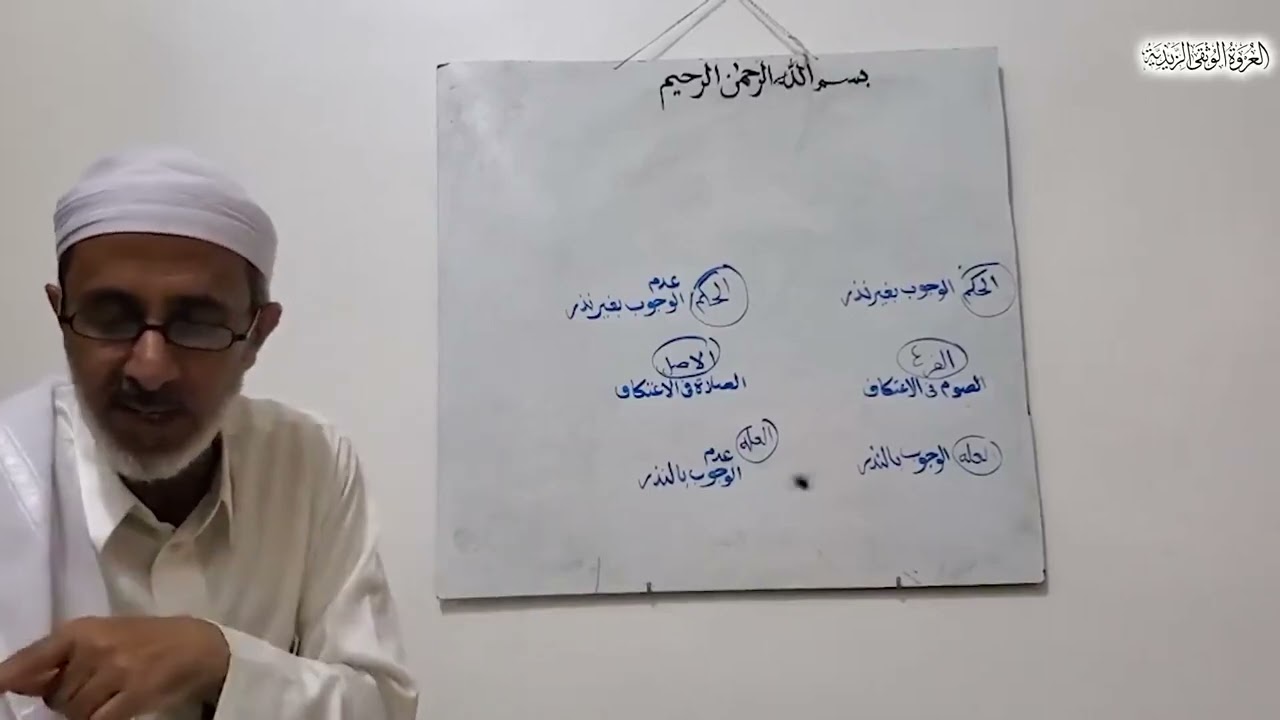 العروة الوثقى الزيدية
بسم الله الرحمن الرحيم
الحكم الوجوب بغير نذر
الفرع
الصوم في الاعتكاف
العلة الوجوب بالنذر
الحكم عدم
الوجوب بغير نذر
الاصل
الصلاة في الاعتكاف
العلة عدم
الوجوب بالنذر